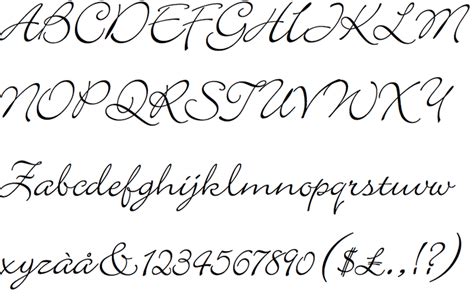 ABCDEFGHIJKLM
NOPQRSTUVWXY
Zabcdefghijklmnopqrstuvw
xyzàå&1234567890($£.,!?)